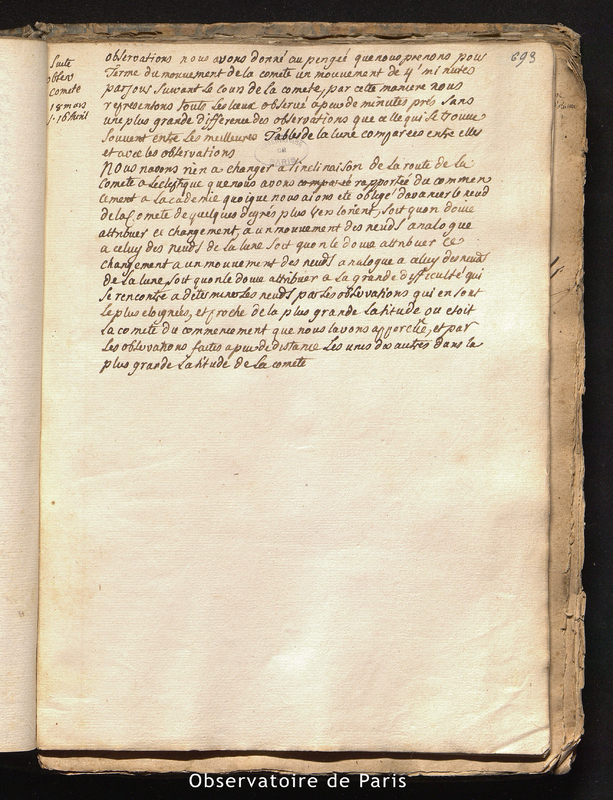 693
Suite
observ
Comete
18 mars
s. 16 Avril
observations nous avons donné au perigeé que nous prenons pour
Terme du mouvement de la comete un mouvement de 4' minutes
par jour suivant le cours de la comete, par cette maniere nous
representons touts les lieux observé a peu de minutes prés sans
une plus grande difference des observations que celle qui se trouve
souvent entre les meilleures Tables de la lune comparées entre elles
et avec les observations
Nous navons rien a changer a l'inclinaison de la route de la
Comete a l'eclyptique que nous avons comparé rapportée du commen
cement a Lacademie quoique nous aions eté obligé d'avancer le neud
de la Comete de quelques degrés plus vers lorient, soit quon doive
attribuer ce changement, a un mouvement des neuds analogue
a celuy des neuds de la lune soit quon le doive attribuer ce
changement a un mouvement des neuds analogue a celuy des neuds
de la lune, soit quon le doive attribuer a la grande difficulté qui
se rencontre a determiner les neuds par les observations qui en sont
le plus eloignées, et proche de la plus grande Latitude ou etoit
la comete du commencement que nous lavons apperçue, et par
les observations faites a peu de distance les unes des autres dans la
plus grande Latitude de la comete
Observatoire de Paris